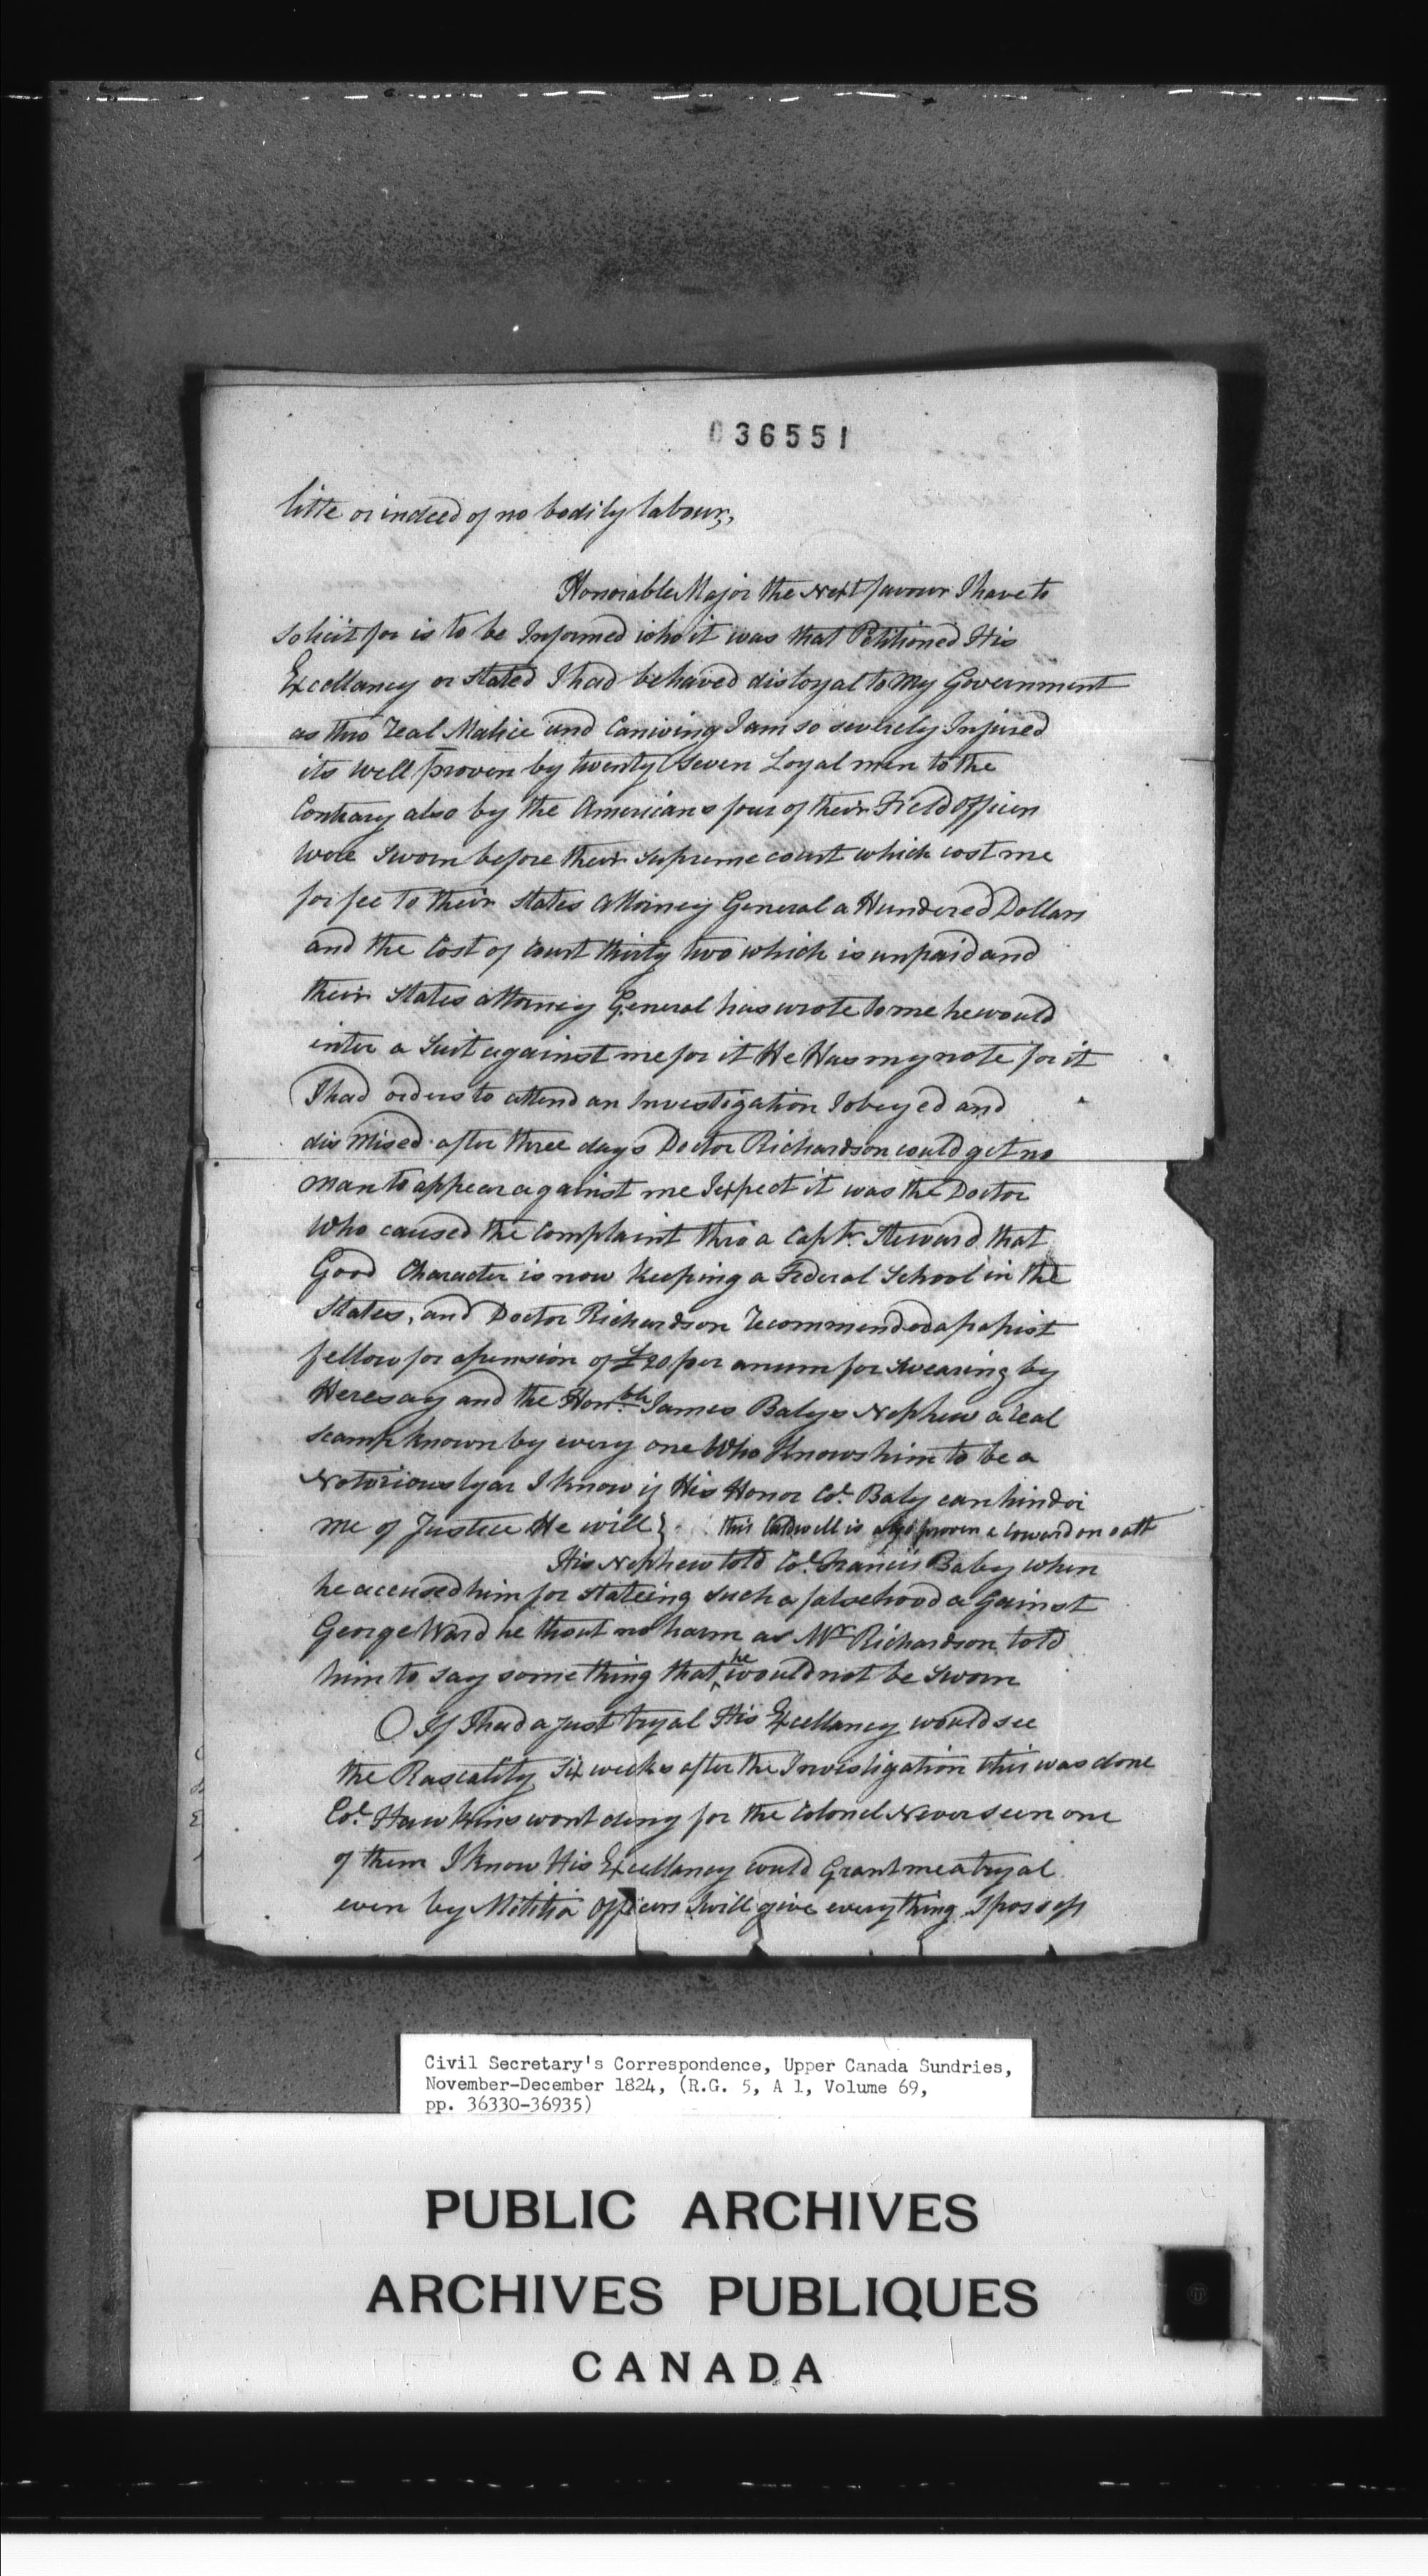 036551
little or indeed of no bodily labour,
Honorable Major the Next favour I have to
solicit for is to be Informed who it was that Petitioned His
Excellancy or stated I had behaved disloyal to My Government
as thro real Malice and Caniving I am so severely Injured
its well proven by twenty Seven Loyal men to the
Contrary also by the Americans four of their Field Officers
were sworn before their Supreme court which cost me
for fee to their states Attorney General a Hundered Dollars
and the Cost of Court thirty two which is unpaid and
their States attorney General has wrote to me he would
inter a Suit against me for it He Has my note for it
I had orders to attend an Investigation I obeyed and
dismised after three days Doctor Richardson could get no
man to appear against me I expect it was the Doctor
Who caused the complaint thro a Captn. Steward that
Good Character is now Keeping a Federal School in the
States, and Doctor Richardson recommended a papist
fellow for a pension of £20 per anum for swearing by
Heresay and the Honble. James Babys Nephew a real
scamp known by every one Who Knows him to be a
Notorious lyar I know if His Honor Col. Baby can hindor
me of Justice He will } this Caldwell is also proven a Coward on oath
His Nephew told Col. Francis Baby when
he accused him for stateing such a falsehood against
George Ward he thout no harm as Mr Richardson told
him to say something that he would not be sworn
O If I had a just tryal His Excellancy would see
the Rascality Six weeks after the Investigation this was done
Col. Hawkins wont deny for the Colonel Never seen one
of them I know His Excellancy would Grant me a tryal
even by Militia Officers I will give everything I possess
Civil Secretary's Correspondence, Upper Canada Sundries,
November-December 1824, (R.G. 5, A 1, Volume 69,
pp. 36330-36935)
PUBLIC ARCHIVES
ARCHIVES PUBLIQUES
CANADA